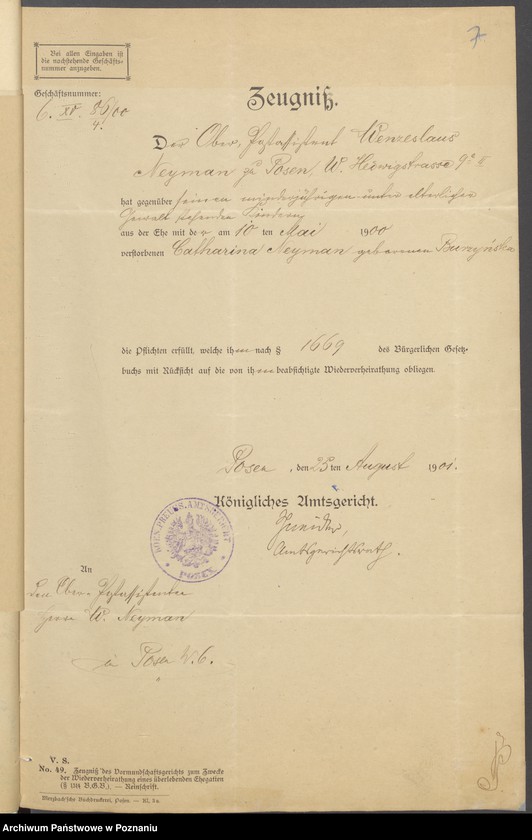 7
Bei allen Eingaben ist
die nachstehende Geschäfts-
nummer anzugeben.
Geschäftsnummer:
6. XV. 86/00
4.
Zeugniß.
Der Ober-Postassistent Wenzeslaus
Neyman zu Posen, W. Hedwigstrasse 9
hat gegenüber seinen minderjährigen unter elterlicher
Gewalt stehenden Kindern
aus der Ehe mit der am 10 ten Mai 1900
verstorbenen Catharina Neyman geborenen Buczyńska
die Pflichten erfüllt, welche ihm nach § 1669 des Bürgerlichen Gesetz-
buchs mit Rücksicht auf die von ihm beabsichtigte Wiederverheirathung obliegen.
Posen, den 25 ten August 1901.
Königliches Amtsgericht.
Amtsgerichtsrath.
KOEN. PREUSS. AMTSGERICHT
POSEN
An
den Ober-Postassistenten
Herrn W. Neyman
in Posen W. 6.
V. S.
No. 49. Zeugniß des Vormundschaftsgerichts zum Zwecke
der Wiederverheirathung eines überlebenden Ehegatten
(§ 1314 B.G.B.). — Reinschrift.
Merzbach'sche Buchdruckerei, Posen
Archiwum Państwowe w Poznaniu